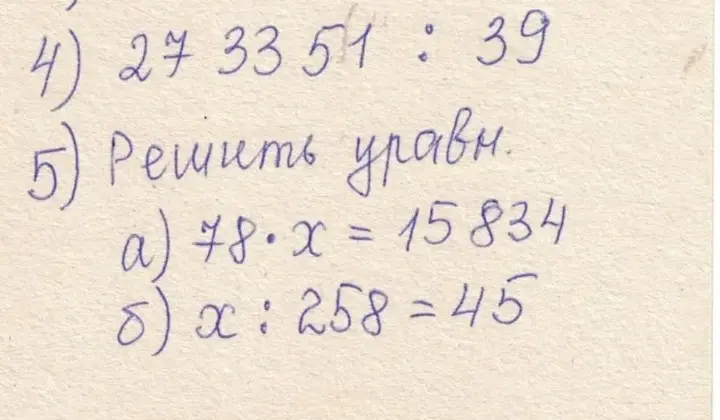 4) 27 33 51 : 39
5) Решить уравн.
а) 78 · x = 15 834
б) x : 258 = 45